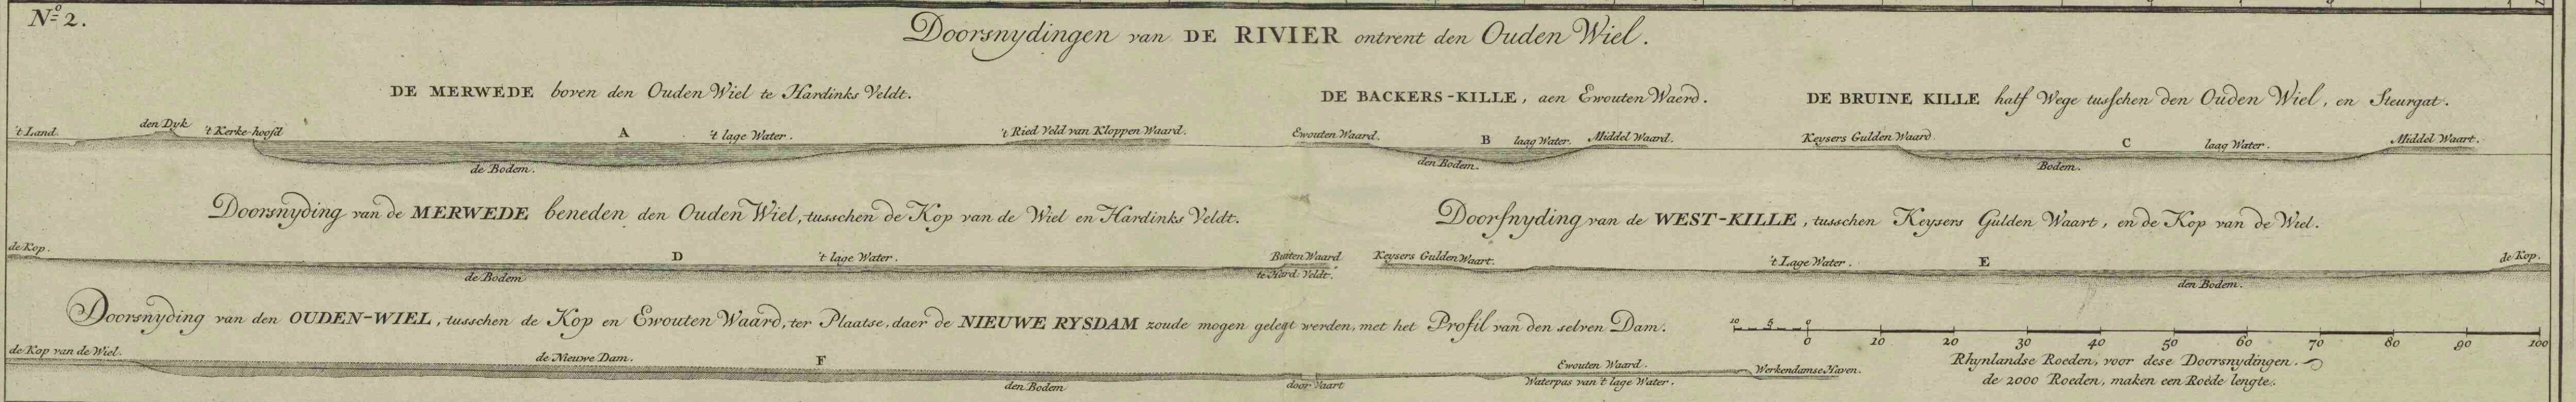 No. 2.
Doorsnydingen van DE RIVIER ontrent den Ouden Wiel.
DE MERWEDE boven den Ouden Wiel te Hardinks Veldt.
't Land. den Dyk 't Kerke-hoofd A 't lage Water. 't Ried Veld van Kloppen Waard.
de Bodem.
DE BACKERS-KILLE, aen Ewouten Waerd.
Ewouten Waard. B laag Water. Middel Waard.
den Bodem.
DE BRUINE KILLE half Wege tusschen den Ouden Wiel, en Steurgat.
Keysers Gulden Waard C laag Water. Middel Waart.
Bodem.
Doorsnyding van de MERWEDE beneden den Ouden Wiel, tusschen de Kop van de Wiel en Hardinks Veldt.
de Kop. D 't lage Water. Buiten Waard
de Bodem te Hard: Veldt.
Doorsnyding van de WEST-KILLE, tusschen Keysers Gulden Waart, en de Kop van de Wiel.
Keysers Gulden Waart. 't Lage Water. E de Kop.
den Bodem.
Doorsnyding van den OUDEN-WIEL, tusschen de Kop en Ewouten Waard, ter Plaatse, daer de NIEUWE RYSDAM zoude mogen gelegt werden, met het Profil van den selven Dam.
de Kop van de Wiel. de Nieuwe Dam. F Ewouten Waard. Werkendamse Haven.
den Bodem door Vaart Waterpas van 't lage Water.
10 5 0
0 10 20 30 40 50 60 70 80 90 100
Rhynlandse Roeden, voor dese Doorsnydingen.
de 2000 Roeden, maken een Roede lengte.